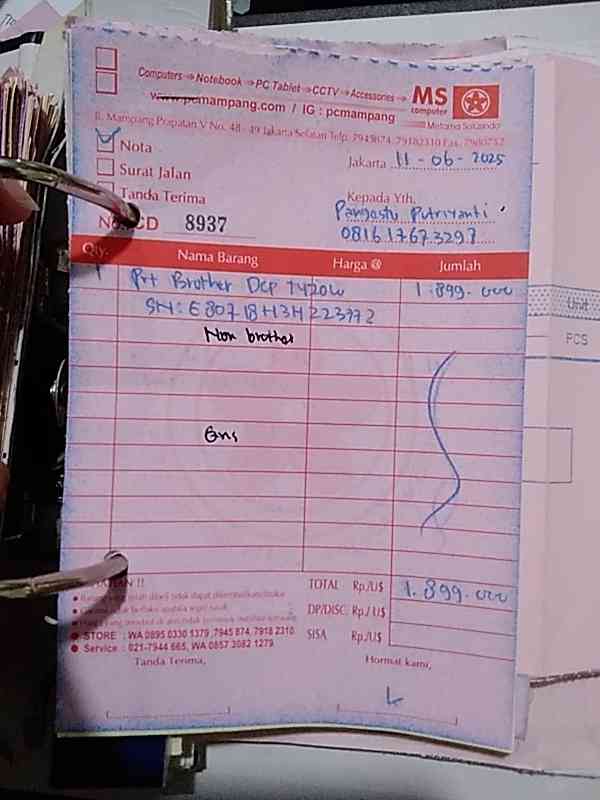 Computers ➔ Notebook ➔ PC Tablet ➔ CCTV ➔ Accessories ➔ MS computer
www.pcmampang.com / IG : pcmampang
Metama Sukando
Jl. Mampang Prapatan V No. 48 - 49 Jakarta Selatan Telp. 7945874, 79182310 Fax. 7980752
Nota
Jakarta 11-06-2025
Surat Jalan
Tanda Terima
Kepada Yth.
Pangastu Putriyanti
0816 1767 3297
No. CD 8937
Qty. Nama Barang Harga @ Jumlah
1 Prt Brother Dcp T420W 1.899.000
SN: E80718H3H223972
Non brother
Gns
TOTAL Rp./U$ 1.899.000
DP/DISC. Rp./U$
SISA Rp./U$
STORE : WA 0895 0330 1379 ,7945 874, 7918 2310
Service : 021-7944 665, WA 0857 3082 1279
Tanda Terima,
Hormat kami,
Unit
PCS